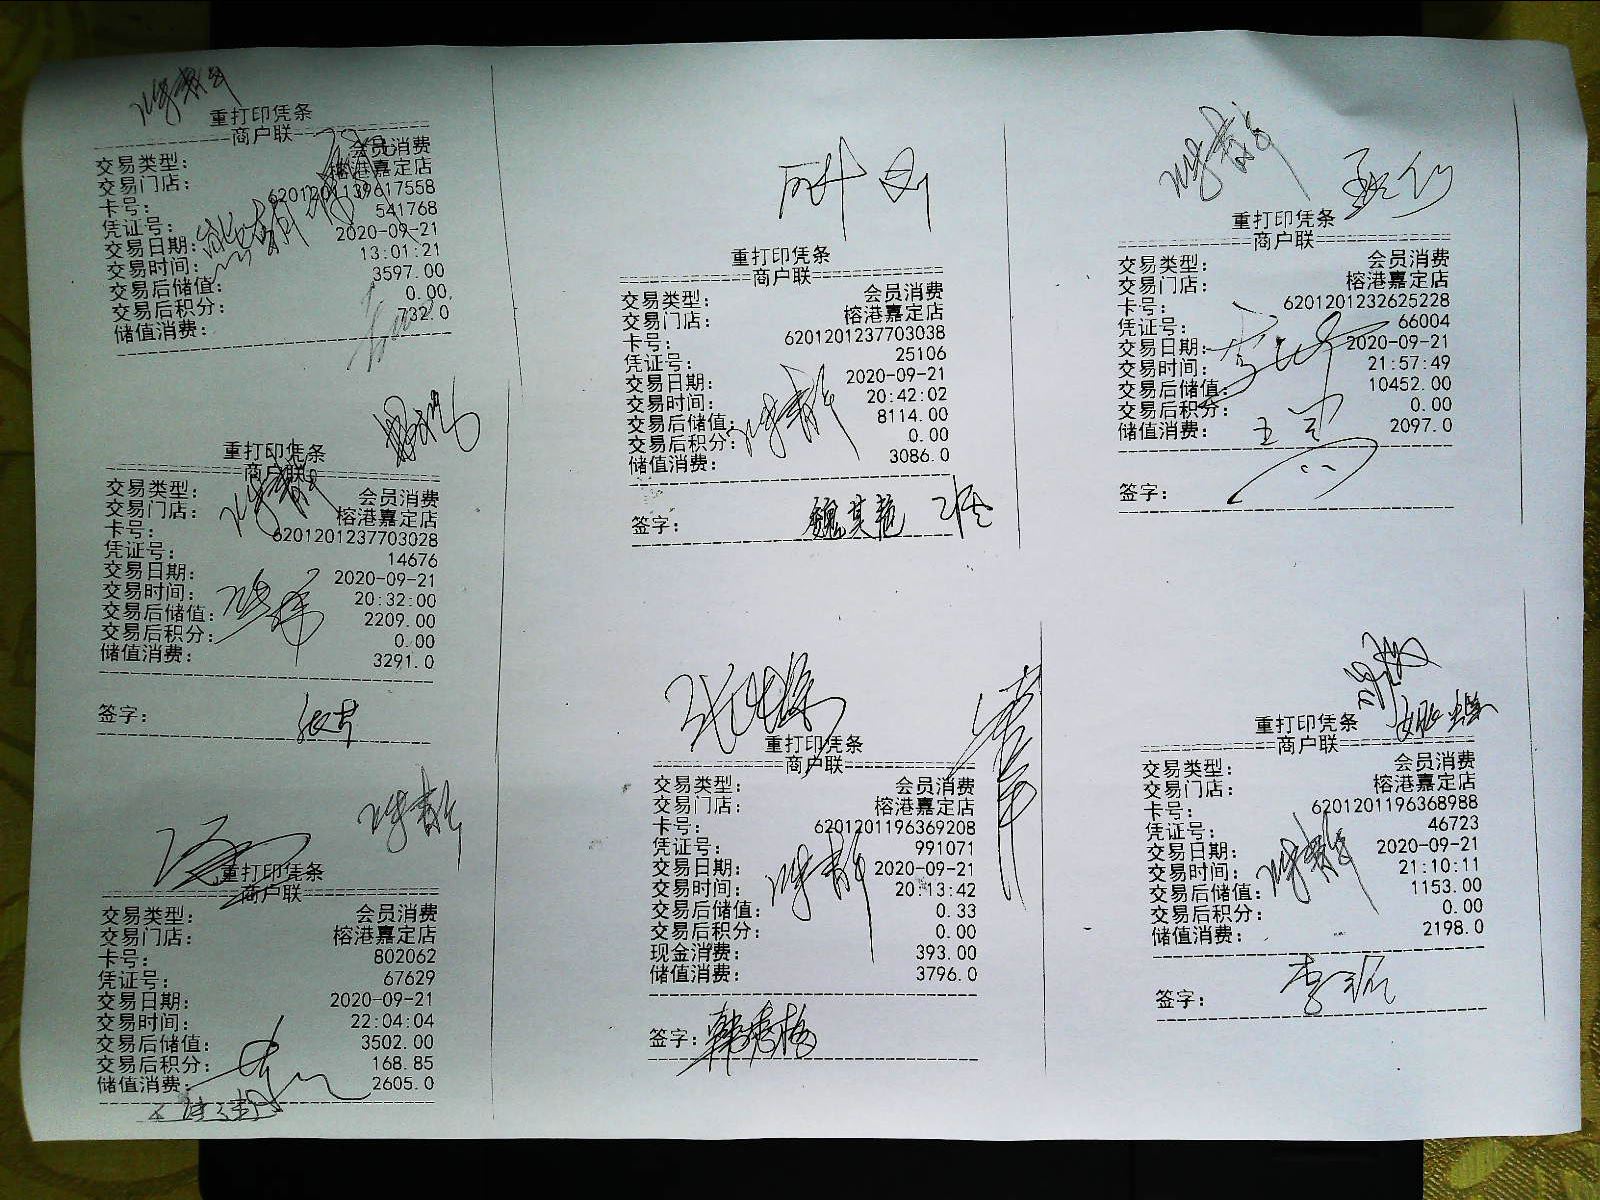 重打印凭条
商户联
交易类型： 会员消费
交易门店： 榕港嘉定店
卡号： 6201201139617558
凭证号： 541768
交易日期： 2020-09-21
交易时间： 13:01:21
交易后储值： 3597.00
交易后积分： 0.00
储值消费： 732.0
重打印凭条
商户联
交易类型： 会员消费
交易门店： 榕港嘉定店
卡号： 6201201237703028
凭证号： 14676
交易日期： 2020-09-21
交易时间： 20:32:00
交易后储值： 2209.00
交易后积分： 0.00
储值消费： 3291.0
签字：
重打印凭条
商户联
交易类型： 会员消费
交易门店： 榕港嘉定店
卡号： 802062
凭证号： 67629
交易日期： 2020-09-21
交易时间： 22:04:04
交易后储值： 3502.00
交易后积分： 168.85
储值消费： 2605.0
重打印凭条
商户联
交易类型： 会员消费
交易门店： 榕港嘉定店
卡号： 6201201237703038
凭证号： 25106
交易日期： 2020-09-21
交易时间： 20:42:02
交易后储值： 8114.00
交易后积分： 0.00
储值消费： 3086.0
签字： 魏其艳
重打印凭条
商户联
交易类型： 会员消费
交易门店： 榕港嘉定店
卡号： 6201201196369208
凭证号： 991071
交易日期： 2020-09-21
交易时间： 20:13:42
交易后储值： 0.33
交易后积分： 0.00
现金消费： 393.00
储值消费： 3796.0
签字： 韩春梅
重打印凭条
商户联
交易类型： 会员消费
交易门店： 榕港嘉定店
卡号： 6201201232625228
凭证号： 66004
交易日期： 2020-09-21
交易时间： 21:57:49
交易后储值： 10452.00
交易后积分： 0.00
储值消费： 2097.0
签字：
重打印凭条
商户联
交易类型： 会员消费
交易门店： 榕港嘉定店
卡号： 6201201196368988
凭证号： 46723
交易日期： 2020-09-21
交易时间： 21:10:11
交易后储值： 1153.00
交易后积分： 0.00
储值消费： 2198.0
签字：